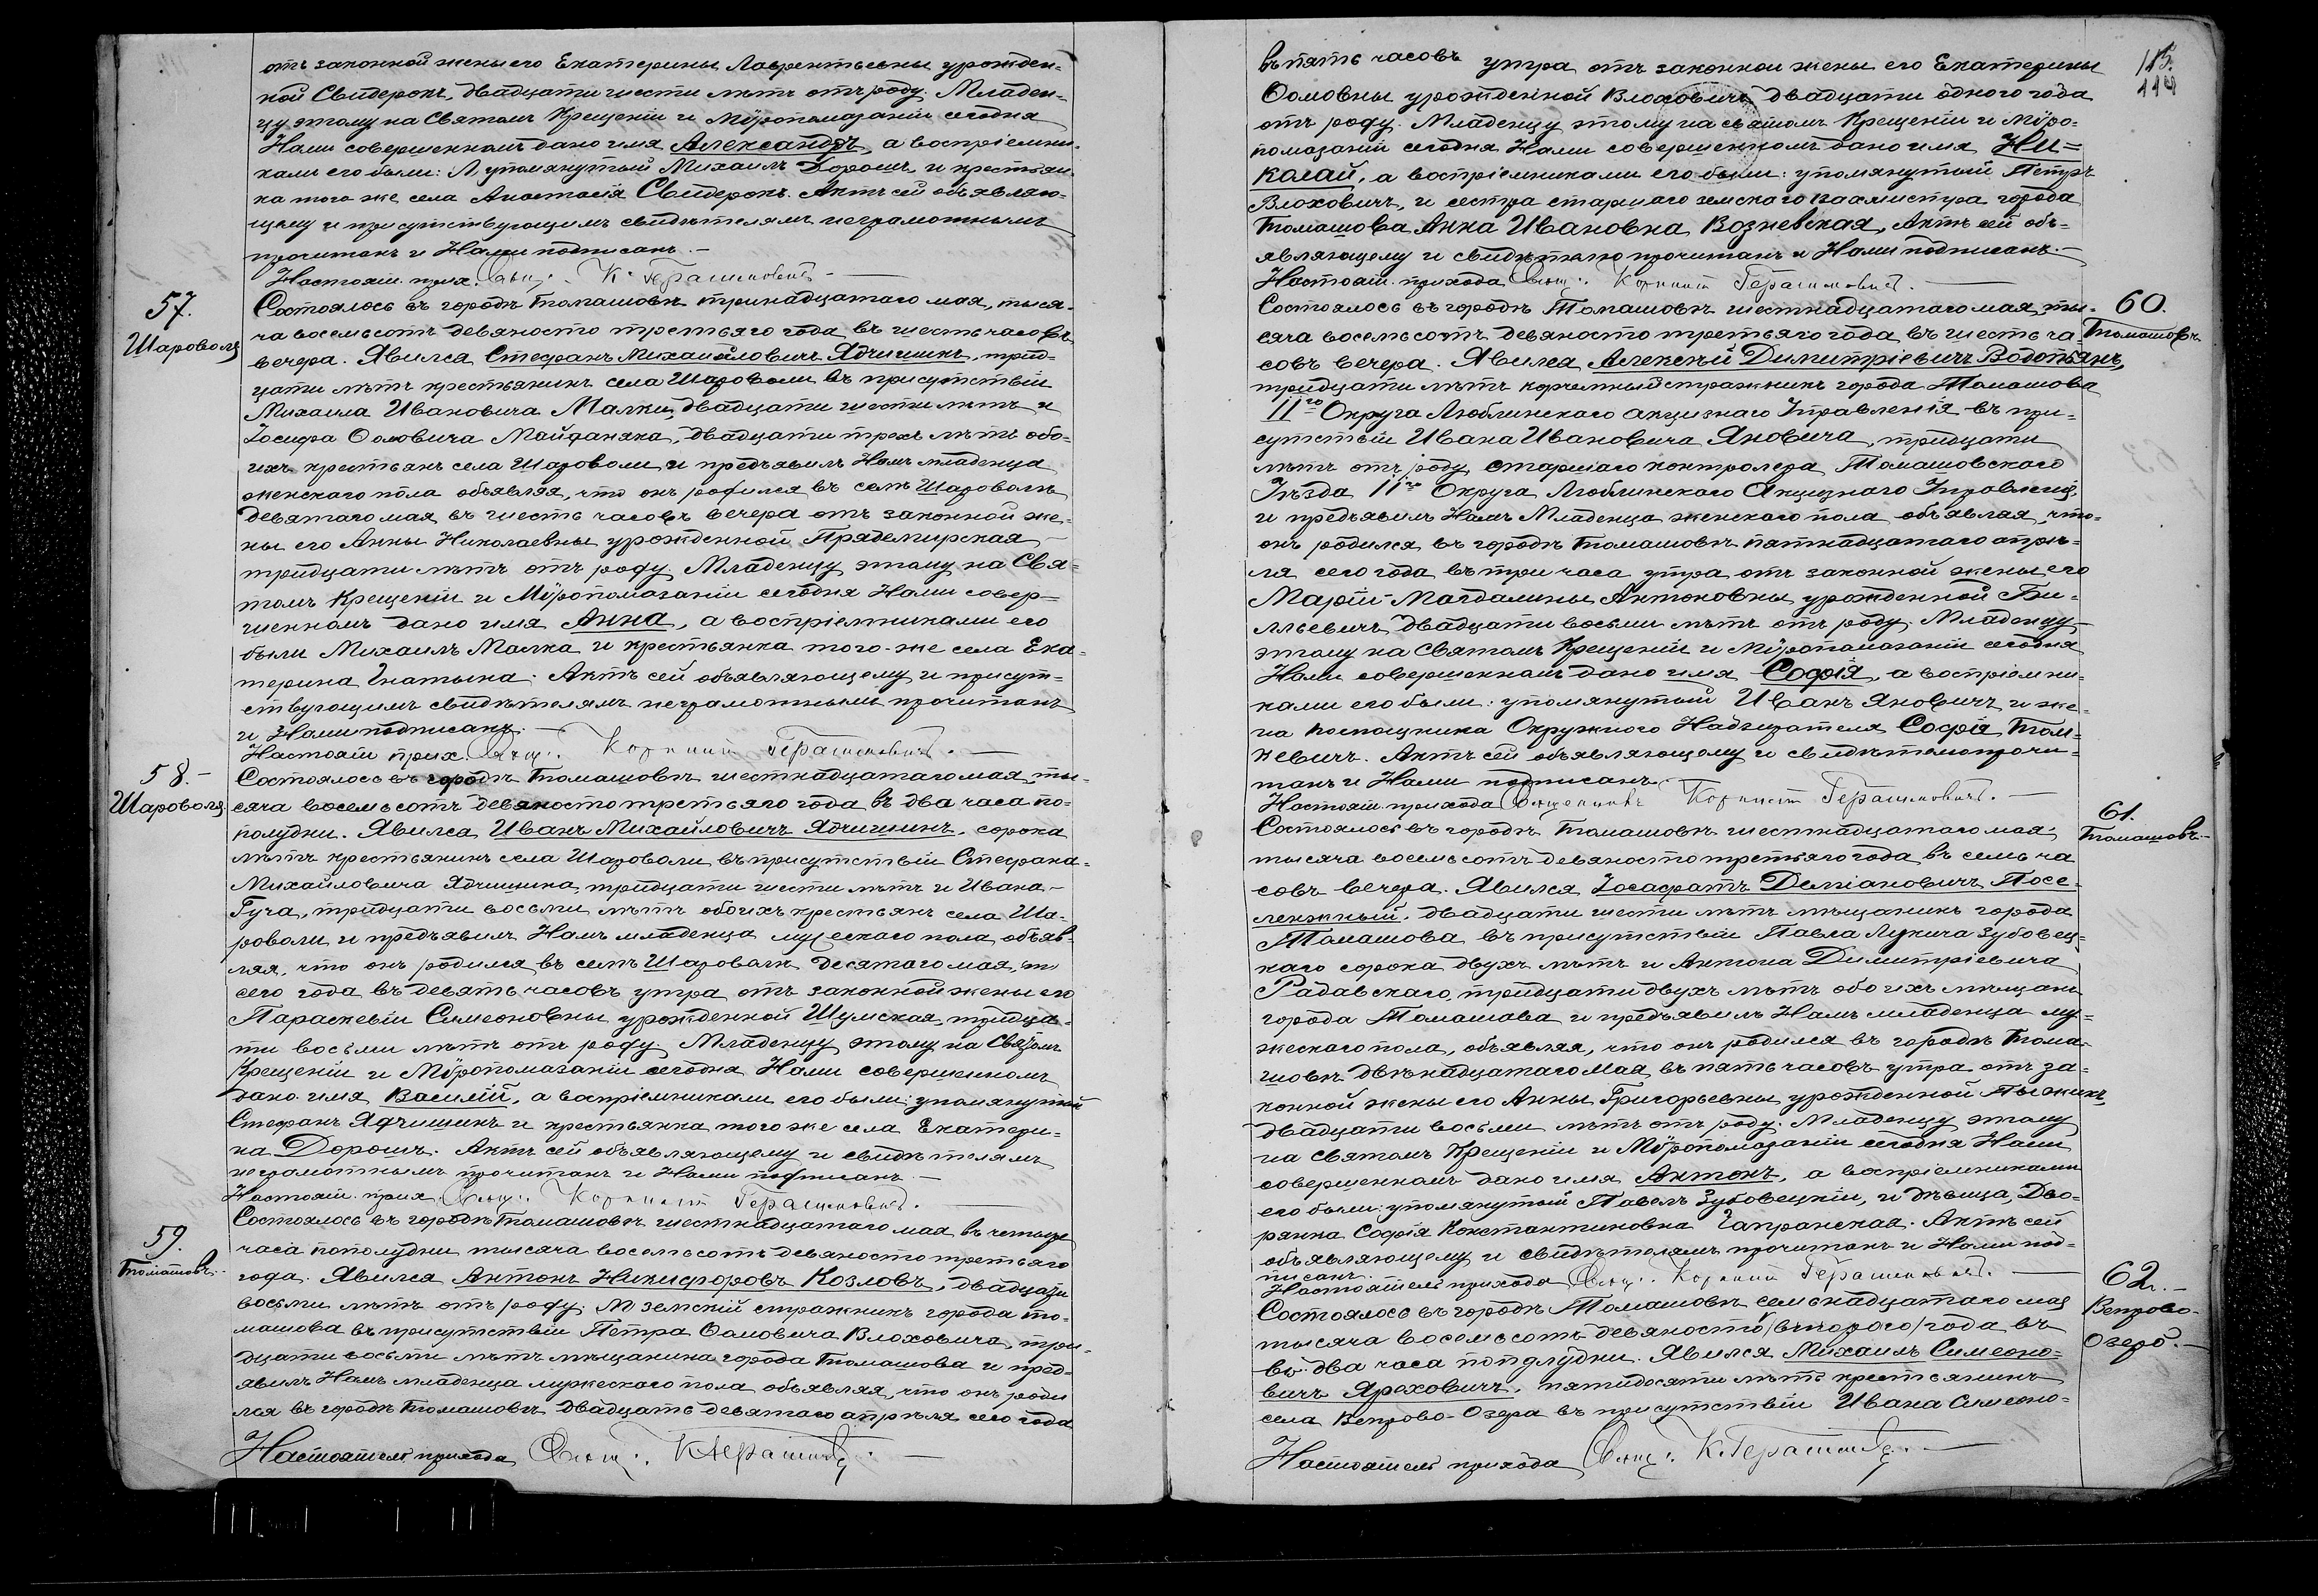 отъ законной жены его Екатерины Лаврентьевны урожден-
ной Свидеронъ, двадцати шести лѣтъ отъ роду. Младен-
цу этому на Святомъ Крещеніи и Мѵропомазаніи сегодня
Нами совершенномъ дано имя Александръ, а воспріемни-
ками его были: упомянутый Михаилъ Дорошъ и крестьян-
ка того же села Анастасія Свидеронъ. Актъ сей объявляю-
щему и присутствующимъ свидѣтелямъ неграмотнымъ
прочитанъ и Нами подписанъ.-
Настоят. прих. Свящ. К. Герасимовичъ
57.
Шароволя
Состоялось въ городѣ Томашовѣ тринадцатаго мая, тыся-
ча восемьсотъ девяносто третьяго года въ шесть часовъ
вечера. Явился Стефанъ Михайловичъ Ядчишинъ, трид-
цати лѣтъ крестьянинъ села Шароволи въ присутствіи
Михаила Ивановича Малки, двадцати шести лѣтъ и
Іосифа Ѳомовича Майданяка, двадцати трехъ лѣтъ обо-
ихъ крестьянъ села Шароволи и предъявилъ Намъ младенца
женскаго пола объявляя, что онъ родился въ селѣ Шароволѣ
девятаго мая въ шесть часовъ вечера отъ законной же-
ны его Анны Николаевны урожденной Прядемирская
тридцати лѣтъ отъ роду. Младенцу этому на Свя-
томъ Крещеніи и Мѵропомазаніи сегодня Нами совер-
шенномъ дано имя Анна, а воспріемниками его
были Михаилъ Малка и крестьянка того-же села Ека-
терина Гнатына. Актъ сей объявляющему и присут-
ствующимъ свидѣтелямъ неграмотнымъ прочитанъ
и Нами подписанъ.-
Настоят. прих. Свящ. Корнилій Герасимовичъ.
58.-
Шароволя
Состоялось въ городѣ Томашовѣ шестнадцатаго мая ты-
сяча восемьсотъ девяносто третьяго года въ два часа по-
полудни. Явился Иванъ Михайловичъ Ядчишинъ, сорока
лѣтъ крестьянинъ села Шароволи въ присутствіи Стефана
Михайловича Ядчишина тридцати шести лѣтъ и Ивана
Гуча, тридцати восьми лѣтъ обоихъ крестьянъ села Ша-
роволи и предъявилъ Намъ младенца мужескаго пола объяв-
ляя, что онъ родился въ селѣ Шароволѣ десятаго мая,
сего года въ девять часовъ утра отъ законной жены его
Параскевіи Симеоновны урожденной Шумская тридца-
ти восьми лѣтъ отъ роду. Младенцу этому на Святомъ
Крещеніи и Мѵропомазаніи сегодня Нами совершенномъ
дано имя Василій, а воспріемниками его были: упомянутый
Стефанъ Ядчишинъ и крестьянка того же села Екатери-
на Дорошъ. Актъ сей объявляющему и свидѣтелямъ
неграмотнымъ прочитанъ и Нами подписанъ.-
Настоят. прих. Свящ. Корнилій Герасимовичъ.
59.
Томашовъ.
Состоялось въ городѣ Томашовѣ шестнадцатаго мая въ четыре
часа пополудни тысяча восемьсотъ девяносто третьяго
года. Явился Антонъ Никифоровъ Козловъ, двадцати
восьми лѣтъ отъ роду, земскій стражникъ города То-
машова въ присутствіи Петра Ѳомовича Влоховича, три-
дцати восьми лѣтъ мѣщанина города Томашова и пред-
явилъ Намъ младенца мужескаго пола объявляя, что онъ роди
лся въ городѣ Томашовѣ двадцать девятаго апрѣля сего года
Настоятель прихода Свящ. К. Герасимовичъ
115.
въ пять часовъ утра отъ законной жены его Екатерины
Ѳомовны урожденной Влоховичъ двадцати одного года
отъ роду. Младенцу этому на святомъ Крещеніи и Мѵро-
помазаніи сегодня Нами совершенномъ дано имя Ни=
колай, а воспріемниками его были: упомянутый Петръ
Влоховичъ, и сестра старшаго земскаго вахмистра города
Томашова Анна Ивановна Возневская, Актъ сей объ-
являющему и свидѣтелю прочитанъ и Нами подписанъ.-
Настоят. прихода Свящ. Корнилій Герасимовичъ.
60.
Томашовъ
Состоялось въ городѣ Томашовѣ шестнадцатаго мая, ты-
сяча восемьсотъ девяносто третьяго года въ шесть ча-
совъ вечера. Явился Алексѣй Димитріевичъ Водотьянъ,
тридцати лѣтъ корчемный стражникъ города Томашова
IIго Округа Люблинскаго акцизнаго Управленія въ при-
сутствіи Ивана Ивановича Яновича, тридцати
лѣтъ отъ роду старшаго контролера Томашовскаго
Уѣзда IIго Округа Люблинскаго Акцизнаго Управленія,
и предъявилъ Намъ Младенца женскаго пола объявляя, что
онъ родился въ городѣ Томашовѣ пятнадцатаго апрѣ-
ля сего года въ три часа утра отъ законной жены его
Маріи-Магдалины Антоновны урожденной Би-
лльевичъ двадцати восьми лѣтъ отъ роду. Младенцу
этому на Святомъ Крещеніи и Мѵропомазаніи сегодня
Нами совершенномъ дано имя Софія, а воспріемни-
ками его были: упомянутый Иванъ Яновичъ и же-
на помощника Окружного Надзирателя Софія Том-
кевичъ. Актъ сей объявляющему и свидѣтелю прочи-
танъ и Нами подписанъ.
Настоят. прихода Священникъ Корнилій Герасимовичъ.
61.
Томашовъ.-
Состоялось въ городѣ Томашовѣ шестнадцатаго мая
тысяча восемьсотъ девяносто третьяго года въ семь ча
совъ вечера. Явился Іосафатъ Демьяновичъ Посе-
ленжный. двадцати шести лѣтъ мѣщанинъ города
Томашова въ присутствіи Павла Лукича Зубовец-
каго сорока двухъ лѣтъ и Антона Димитріевича
Радавскаго, тридцати двухъ лѣтъ обоихъ мѣщанъ
города Томашова и предъявилъ Намъ младенца му-
жескаго пола, объявляя, что онъ родился въ городѣ Тома-
шовѣ двѣнадцатаго мая въ пять часовъ утра отъ за-
конной жены его Анны Григорьевны урожденной Пыжикъ
двадцати восьми лѣтъ отъ роду. Младенцу этому
на святомъ Крещеніи и Мѵропомазаніи сегодня Нами
совершенномъ дано имя Антонъ, а воспріемниками
его были: упомянутый Павелъ Зубовецкій, и дѣвица, Дво-
рянка Софія Константиновна Чапранская. Актъ сей
объявляющему и свидѣтелямъ прочитанъ и Нами под-
писанъ.
Настоятель прихода Свящ. Корнилій Герасимовичъ.
62.-
Вепрово-
Озеро.-
Состоялось въ городѣ Томашовѣ семнадцатаго мая
тысяча восемьсотъ девяносто /второго/ года въ
въ два часа пополудни. Явился Михаилъ Симеоно-
вичъ Яроховичъ, пятидесяти лѣтъ крестьянинъ
села Вепрово-Озера въ присутствіи Ивана Симеоно-
Настоятель прихода Свящ. К. Герасимовичъ